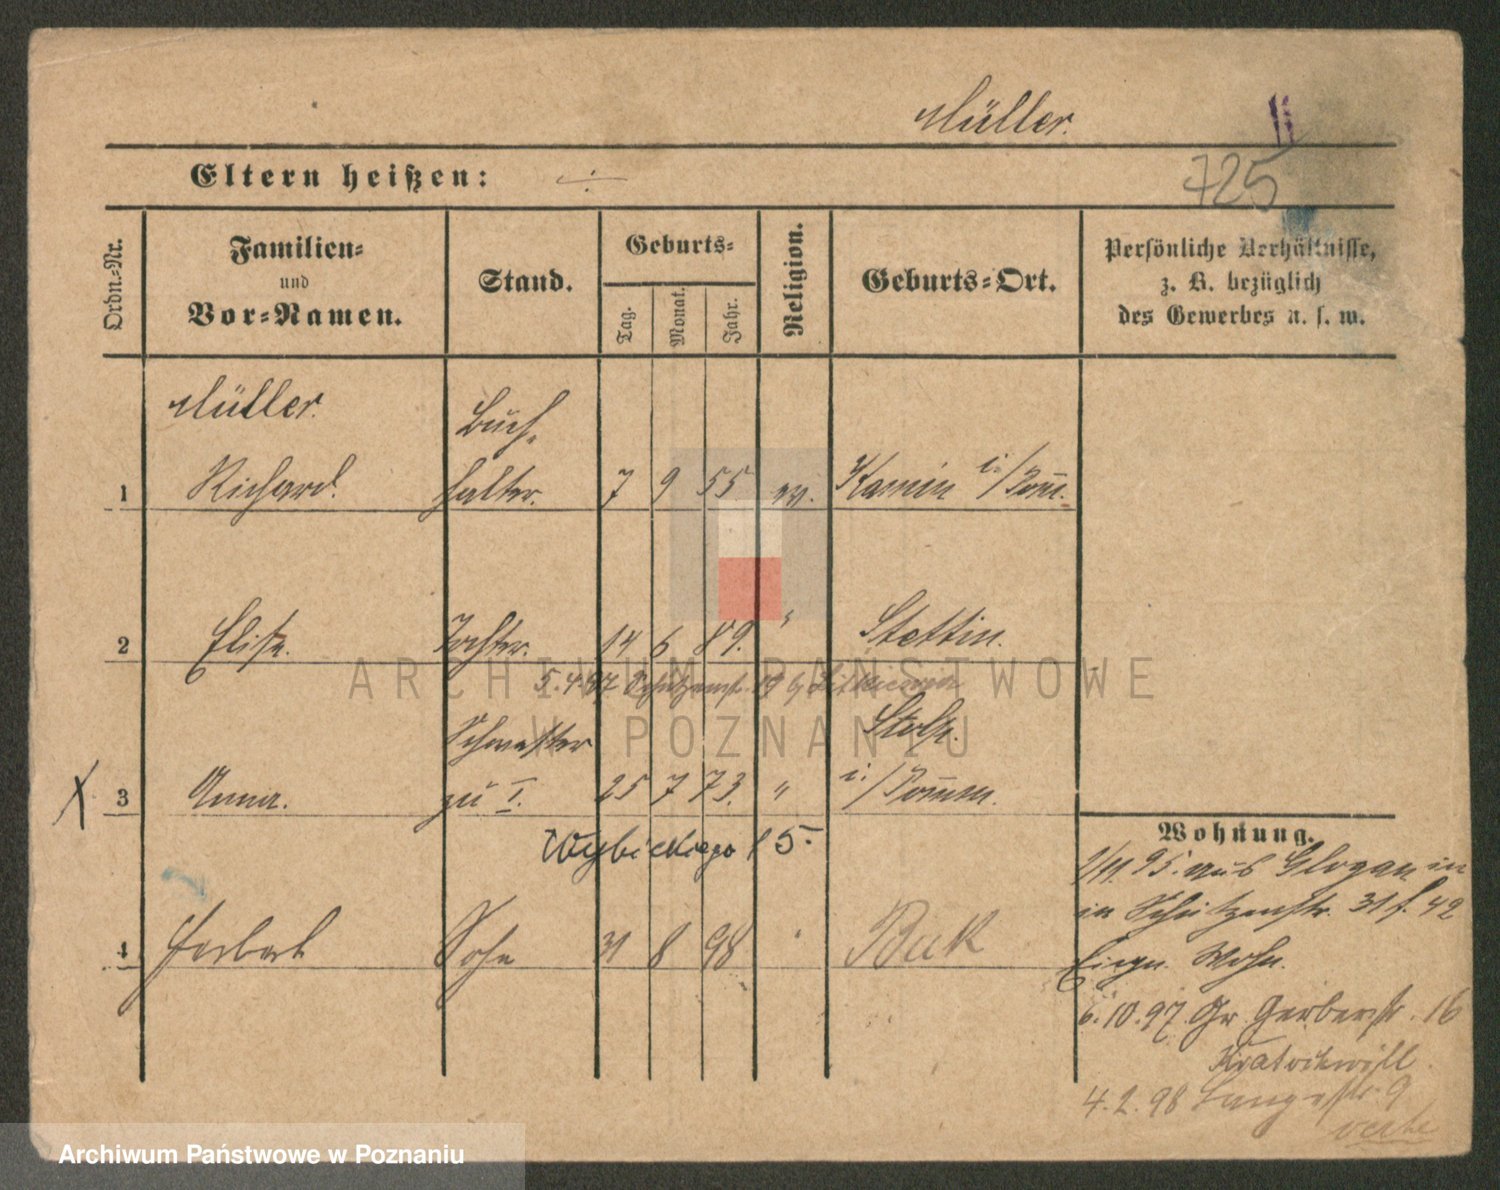 Müller.
725
Eltern heißen: ÷
Ordn.-Nr.
Familien-
und
Vor-Namen.
Stand.
Geburts-
Tag.
Monat.
Jahr.
Religion.
Geburts-Ort.
Persönliche Verhältnisse,
z. B. bezüglich
des Gewerbes u. s. w.
Müller. Buch-
1 Richard. halter. 7 9 55 ev. Kamin i./Pom.
2 Elise. Tochter. 14 6 89. " Stettin.
5.4.
Schwester Stolp.
X 3 Anna. zu I. 25 7 73. " i./Pomm.
Wybickiego 15.
4 Herbert Sohn 31 8 98 " Buk
Wohnung.
1/11. 95. aus Glogau in
in Schützenstr. 31 f. 42
Eigen. Wohn.
6.10.97. Gr. Gerberstr. 16
4.2.98 Langestr. 9
verte
ARCHIWUM PAŃSTWOWE
W POZNANIU
Archiwum Państwowe w Poznaniu